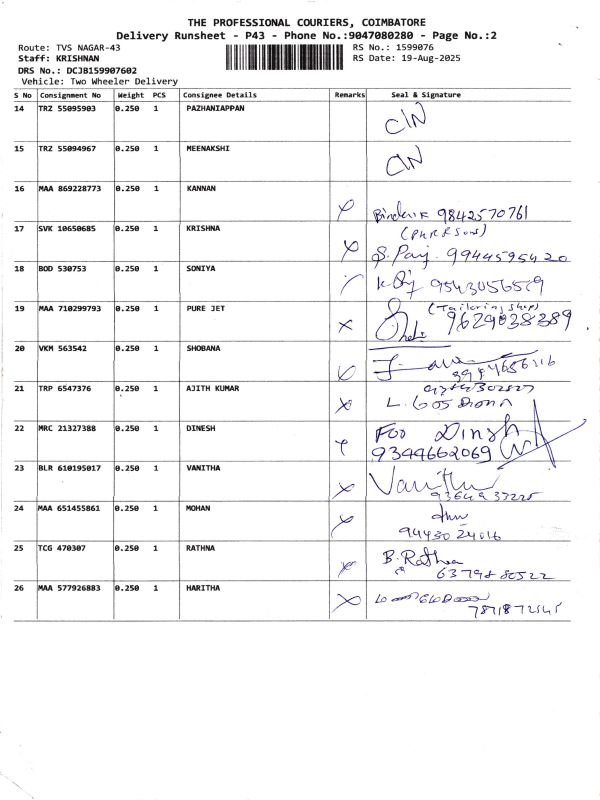 THE PROFESSIONAL COURIERS, COIMBATORE
Delivery Runsheet - P43 - Phone No.:9047080280 - Page No.:2
Route: TVS NAGAR-43 RS No.: 1599076
Staff: KRISHNAN RS Date: 19-Aug-2025
DRS No.: DCJB159907602
Vehicle: Two Wheeler Delivery
S No Consignment No Weight PCS Consignee Details Remarks Seal & Signature
14 TRZ 55095903 0.250 1 PAZHANIAPPAN
15 TRZ 55094967 0.250 1 MEENAKSHI
16 MAA 869228773 0.250 1 KANNAN
9842570761
17 SVK 10650685 0.250 1 KRISHNA
9944595420
18 BOD 530753 0.250 1 SONIYA
9543056579
19 MAA 710299793 0.250 1 PURE JET
(Tailoring shop)
9629038389
20 VKM 563542 0.250 1 SHOBANA
21 TRP 6547376 0.250 1 AJITH KUMAR
22 MRC 21327388 0.250 1 DINESH
9344662069
23 BLR 610195017 0.250 1 VANITHA
Vanitha
24 MAA 651455861 0.250 1 MOHAN
9443024016
25 TCG 470307 0.250 1 RATHNA
B. Rathna
26 MAA 577926883 0.250 1 HARITHA